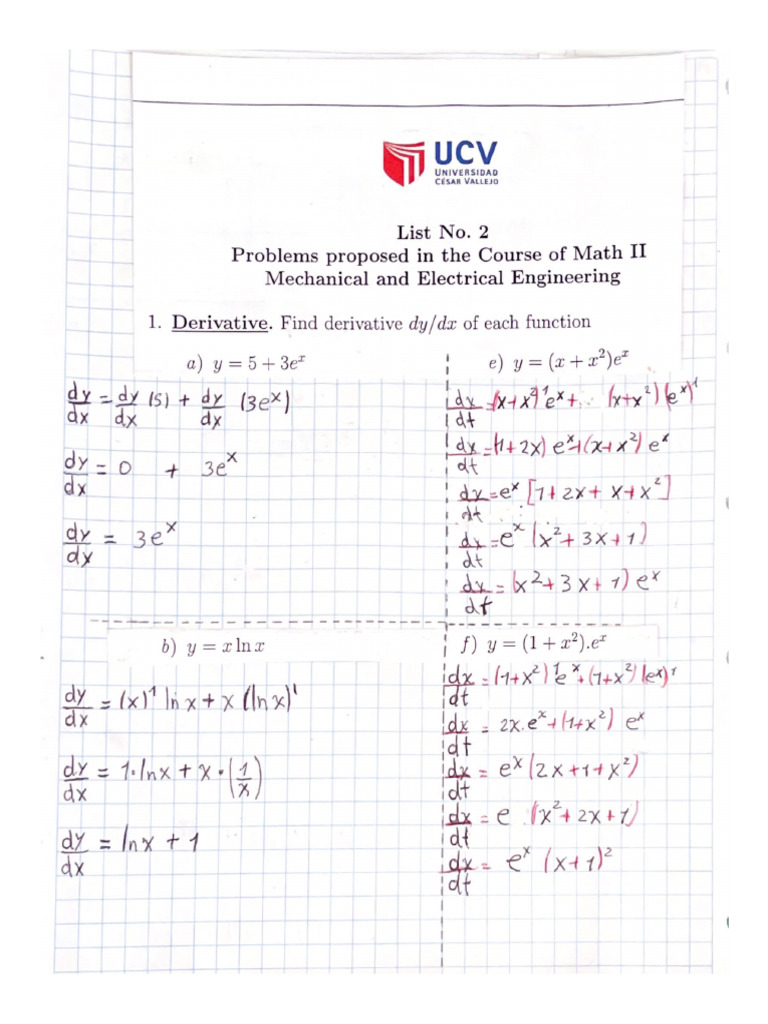 UCV
UNIVERSIDAD
CÉSAR VALLEJO
List No. 2
Problems proposed in the Course of Math II
Mechanical and Electrical Engineering
1. Derivative. Find derivative dy/dx of each function
a) y = 5 + 3eˣ
dy/dx = dy/dx (5) + dy/dx (3eˣ)
dy/dx = 0 + 3eˣ
dy/dx = 3eˣ
b) y = x ln x
dy/dx = (x)' ln x + x (ln x)'
dy/dx = 1·ln x + x·(1/x)
dy/dx = ln x + 1
e) y = (x + x²)eˣ
dx/dt = (x+x²)' eˣ + (x+x²)(eˣ)'
dx/dt = (1+2x) eˣ + (x+x²) eˣ
dx/dt = eˣ [1+2x+x+x²]
dx/dt = eˣ (x²+3x+1)
dx/dt = (x²+3x+1) eˣ
f) y = (1 + x²).eˣ
dx/dt = (1+x²)' eˣ + (1+x²)(eˣ)'
dx/dt = 2x.eˣ + (1+x²) eˣ
dx/dt = eˣ (2x+1+x²)
dx/dt = e (x²+2x+1)
dx/dt = eˣ (x+1)²